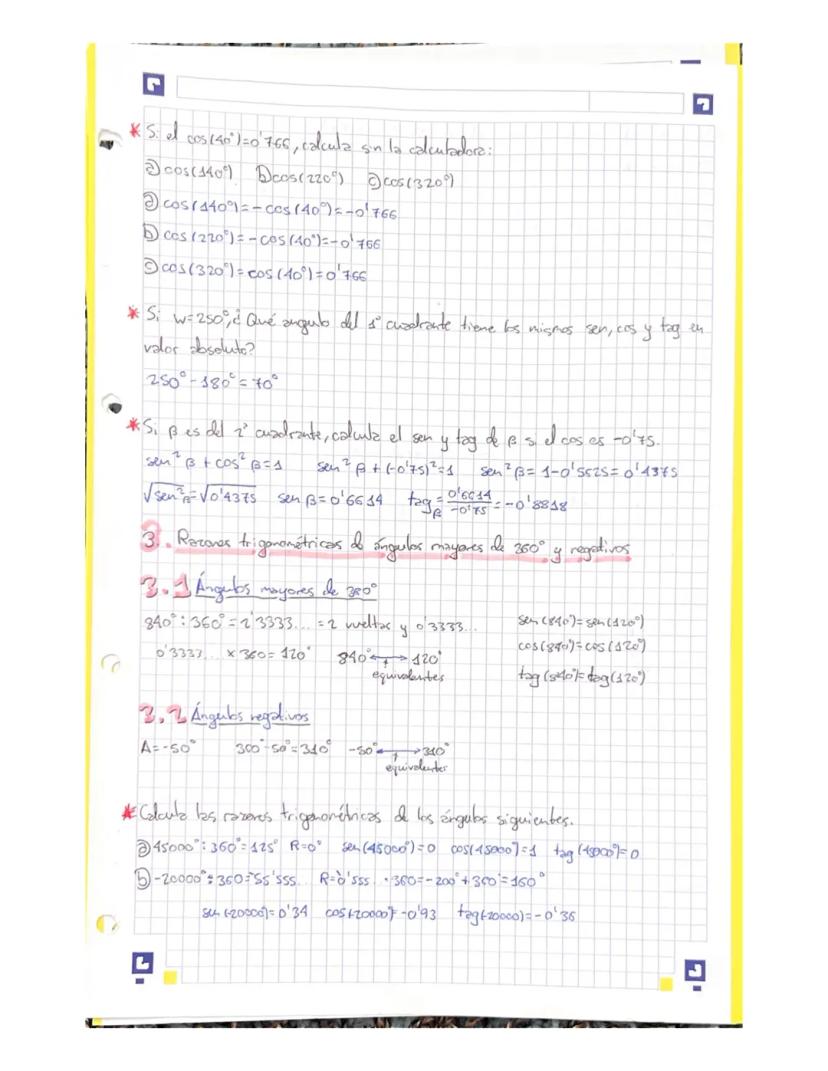 * Si el cos(40°)=0'766, calcula sin la calculadora:
a) cos(140°) b) cos(220°) c) cos(320°)
a) cos(140°)=-cos(40°)=-0'766
b) cos(220°)=-cos(40°)=-0'766
c) cos(320°)=cos(40°)=0'766
* Si w=250°, ¿Qué angulo del 1° cuadrante tiene los mismos sen, cos y tag en
valor absoluto?
250°-180°=70°
* Si β es del 2° cuadrante, calcula el sen y tag de β si el cos es -0'75.
sen²β+cos²β=1 sen²β+(-0'75)²=1 sen²β=1-0'5625=0'4375
√sen²β=√0'4375 senβ=0'6614 tagβ=0'6614/-0'75=-0'8818
3. Razones trigonométricas de ángulos mayores de 360° y negativos
3.1 Ángulos mayores de 360°
840°:360°=2'3333...=2 vueltas y 0'3333... sen(840°)=sen(120°)
0'3333...x360=120° 840°↔120° cos(840°)=cos(120°)
equivalentes tag(840°)=tag(120°)
3.2 Ángulos negativos
A=-50° 360°-50°=310° -50°↔310°
equivalentes
* Calcula las razones trigonométricas de los ángulos siguientes.
a) 45000°:360°=125° R=0° sen(45000°)=0 cos(45000°)=1 tag(45000°)=0
b) -20000°:360=55'555... R=0'555...·360=-200°+360°=160°
sen(-20000)=0'34 cos(-20000)=-0'93 tag(-20000)=-0'36